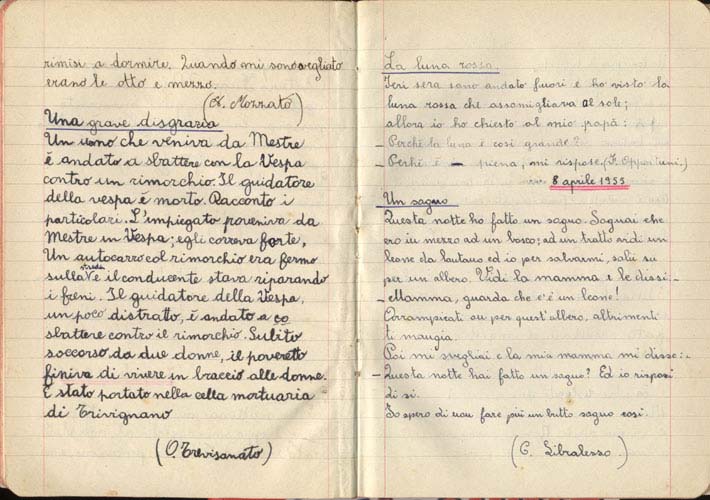 rimisi a dormire. Quando mi sono svegliato
erano le otto e mezzo.
(A. Mozzato)
Una grave disgrazia
Un uomo che veniva da Mestre
è andato a sbattere con la Vespa
contro un rimorchio. Il guidatore
della vespa è morto. Racconto i
particolari. L'impiegato proveniva da
Mestre in Vespa; egli correva forte,
Un autocarro col rimorchio era fermo
sulla strada e il conducente stava riparando
i freni. Il guidatore della Vespa,
un poco distratto, è andato a
sbattere contro il rimorchio. Subito
soccorso da due donne, il poveretto
finiva di vivere in braccio alle donne.
È stato portato nella cella mortuaria
di Trivignano
(O. Trevisanato)
La luna rossa.
Ieri sera sono andato fuori e ho visto la
luna rossa che assomigliava al sole;
allora io ho chiesto al mio papà:
- Perchè la luna è così grande?
- Perhè è piena, mi rispose. (F. Opportuni.)
8 aprile 1955
Un sogno
Questa notte ho fatto un sogno. Sognai che
ero in mezzo ad un bosco; ad un tratto vidi un
leone da lontano ed io per salvarmi, salii su
per un albero. Vidi la mamma e le dissi: -
- Mamma, guarda che c'è un leone!
Corrampicati su per quest'albero, altrimenti
ti mangia.
Poi mi svegliai e la mia mamma mi disse: -
- Questa notte hai fatto un sogno? Ed io risposi
di sì.
Io spero di non fare più un brutto sogno così.
(C. Libralesso.)